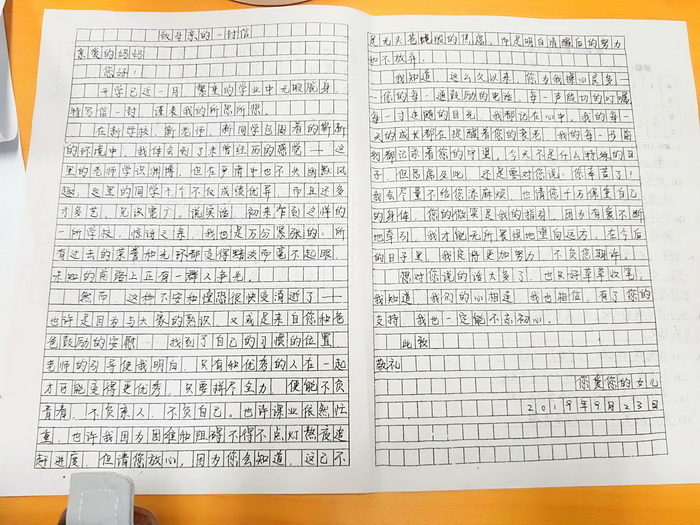 致母亲的一封信
亲爱的妈妈
您好！
开学已近一月，繁重的学业中无暇脱身，
特写信一封，谨表我的所思所想。
在新学校，新老师，新同学包围着的崭新
的环境中，我体会到了未曾经历的感觉——这
里的老师学识渊博，但在严肃中也不失幽默风
趣，这里的同学个个不仅成绩优异，而且还多
才多艺，见识宽广。说实话，初来乍到这样的
一所学校，惊讶之余，我也是万分紧张的：所
有过去的荣誉和光环都变得黯淡而毫不起眼，
未知的前路上正有一群人争光。
然而，这种不安和惶恐很快变消逝了——
也许是因为与大家的熟识，又或是来自你和爸
爸鼓励的安慰——我找到了自己的习惯的位置，
老师的引导使我明白，只有和优秀的人在一起
才可能变得更优秀，只要拼尽全力，便能不负
青春，不负亲人，不负自己。也许课业依然忙
重，也许我因为困难和阻碍不得不点灯熬夜追
赶进度，但请您放心，因为您会知道，这已不
是无头苍蝇般的焦虑，而是明白清醒后的努力
和不放弃。
我知道，这么久以来，您为我操心足多——
您的每一通鼓励的电话，每一声殷切的叮嘱，
每一寸注视的目光，我都记在心中，我的每一
天的成长都在提醒着您的衰老，我的每一步前
行都记录着您的守望。今天不是什么特殊的日
子，但思虑及此，还是要对您说：您辛苦了！
我会尽量不给您添麻烦，也请您千万保重自己
的身体，您的微笑是我的指引，因为有爱不断
地牵引，我才能无所畏惧地望向远方，在今后
的日子里，我定将更加努力，不负您期许。
想对您说的话太多了，也只好草草收笔，
我知道，我们的心相连，我也相信，有了您的
支持，我也一定能不忘初心。
此致
敬礼
您爱您的女儿
2019年9月23日